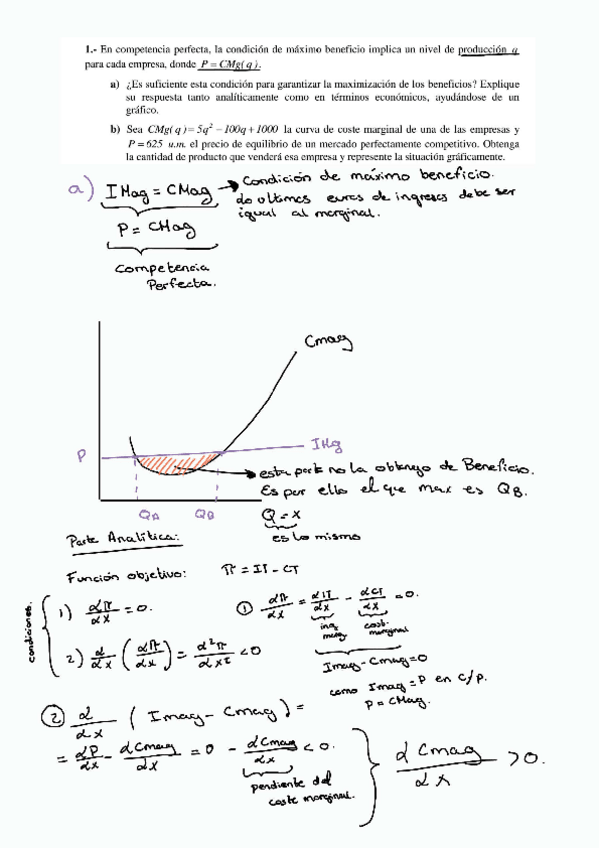 1.- En competencia perfecta, la condición de máximo beneficio implica un nivel de producción q
para cada empresa, donde P = CMg( q ).
a) ¿Es suficiente esta condición para garantizar la maximización de los beneficios? Explique
su respuesta tanto analíticamente como en términos económicos, ayudándose de un
gráfico.
b) Sea CMg( q ) = 5q² − 100q + 1000 la curva de coste marginal de una de las empresas y
P = 625 u.m. el precio de equilibrio de un mercado perfectamente competitivo. Obtenga
la cantidad de producto que venderá esa empresa y represente la situación gráficamente.
a) IMag = CMag → Condición de máximo beneficio.
do ultimos euros de ingresos debe ser
igual al marginal.
P = CMag
Competencia
Perfecta.
Cmag
P
IMg
esta parte no la obtengo de Beneficio.
Es por ello el que max es QB.
QA QB Q = x
es lo mismo
Parte Analítica:
Función objetivo: π = IT - CT
condiciones.
1) dπ/dx = 0.
① dπ/dx = dIT/dx - dCT/dx = 0.
ing. marg. cost. marginal
Imag - Cmag = 0
2) d/dx (dπ/dx) = d²π/dx² < 0
como Imag = P en c/p.
P = CMag.
② d/dx ( Imag - Cmag ) =
= dP/dx - dCmag/dx = 0 - dCmag/dx < 0.
pendiente del
coste marginal.
dCmag/dx > 0.